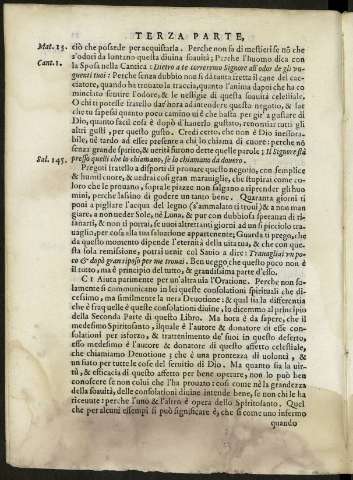 TERZA PARTE,
Mat. 13. ciò che possede per acquistarla. Perche non fa di mestieri se nõ che
s'odori da lontano questa diuina soauità; Perche l'huomo dica con
Cant. 1. la Sposa nella Cantica: Dietro a te corremmo Signore all'odor de gli vn-
guenti tuoi: Perche senza dubbio non fà dà tanta fretta il cane del cac-
ciatore, quando ha trouato la traccia, quanto l'anima dapoi che ha co
minciato sentire l'odore, & le uestigie di questa soauità celestiale.
O chi ti potesse fratello dar'hora ad intendere questo negotio, & far
che tu sapessi quanto poco camino ui è che basta per gir'a gustare di
Dio, quanto facil cosa è dopò d'hauerlo gustato, renontiar tutti gli
altri gusti, per questo gusto. Credi certo, che non è Dio inesora-
bile, nè tardo ad esser presente a chi lo chiama di cuore: perche nõ
senza grande spirito, & uerità furono dette quelle parole; Il Signore stà
Sal. 145. presso quelli che lo chiamano, se lo chiamano da douero.
Pregoti fratello a disporti di prouare questo negotio, con semplice
& humil cuore, & uedrai cosi gran marauiglie, che stupirai come co-
loro che le prouano, sopra le piazze non salgano a riprender gli huo
mini, perche lascino di godere un tanto bene. Quaranta giorni ti
poni a pigliare l'acqua del legno (s'ammalato ti troui) & a non man
giare, a non ueder Sole, nè Luna, & pur con dubbiosa speranza di ri-
sanarti, & non ti porrai, se uuoi altrettanti giorni ad un si picciolo tra-
uaglio, per cosa alla tua saluatione appartenente; Guarda ti prego, che
da questo momento dipende l'eternità della uita tua, & che con que-
sta sola remissione, potrai uenir col Sauio a dire: Trauagliai vn po-
co & dopò gran riposo per me trouai. Ben ueggo che questo poco non è
il tutto, ma è principio del tutto, & grandissima parte d'esso.
CI Aiuta parimente per un'altra uia l'Oratione. Perche non so-
lamente si comunicano in lei queste consolationi spirituali che di-
cessimo, ma similmente la uera Deuotione: & qual sia la differentia
che è fra quelle & queste consolationi diuine, lo diremmo al principio
della Seconda Parte di questo Libro. Ma hora è da sapere, che il
medesimo Spiritosanto, ilquale è l'autore & donatore di esse con-
solationi per isforzo, & trattenimento de' suoi in questo deserto,
esso medesimo è l'autore & donatore di questo affetto celestiale,
che chiamiamo Deuotione; che è una prontezza di uolontà, &
un fiato per tutte le cose del seruitio di Dio. Ma quanto sia la uir-
tù, & efficacia di questo affetto per bene operare, non lo può ben
conoscere se non colui che l'ha prouato: cosi come nè la grandezza
della soauità, delle consolationi diuine intende bene, se non chi le ha
riceuute: perche l'uno & l'altro è opera dello Spiritosanto. Quel
che per alcuni esempi si può significare è, che si come uno infermo
quando